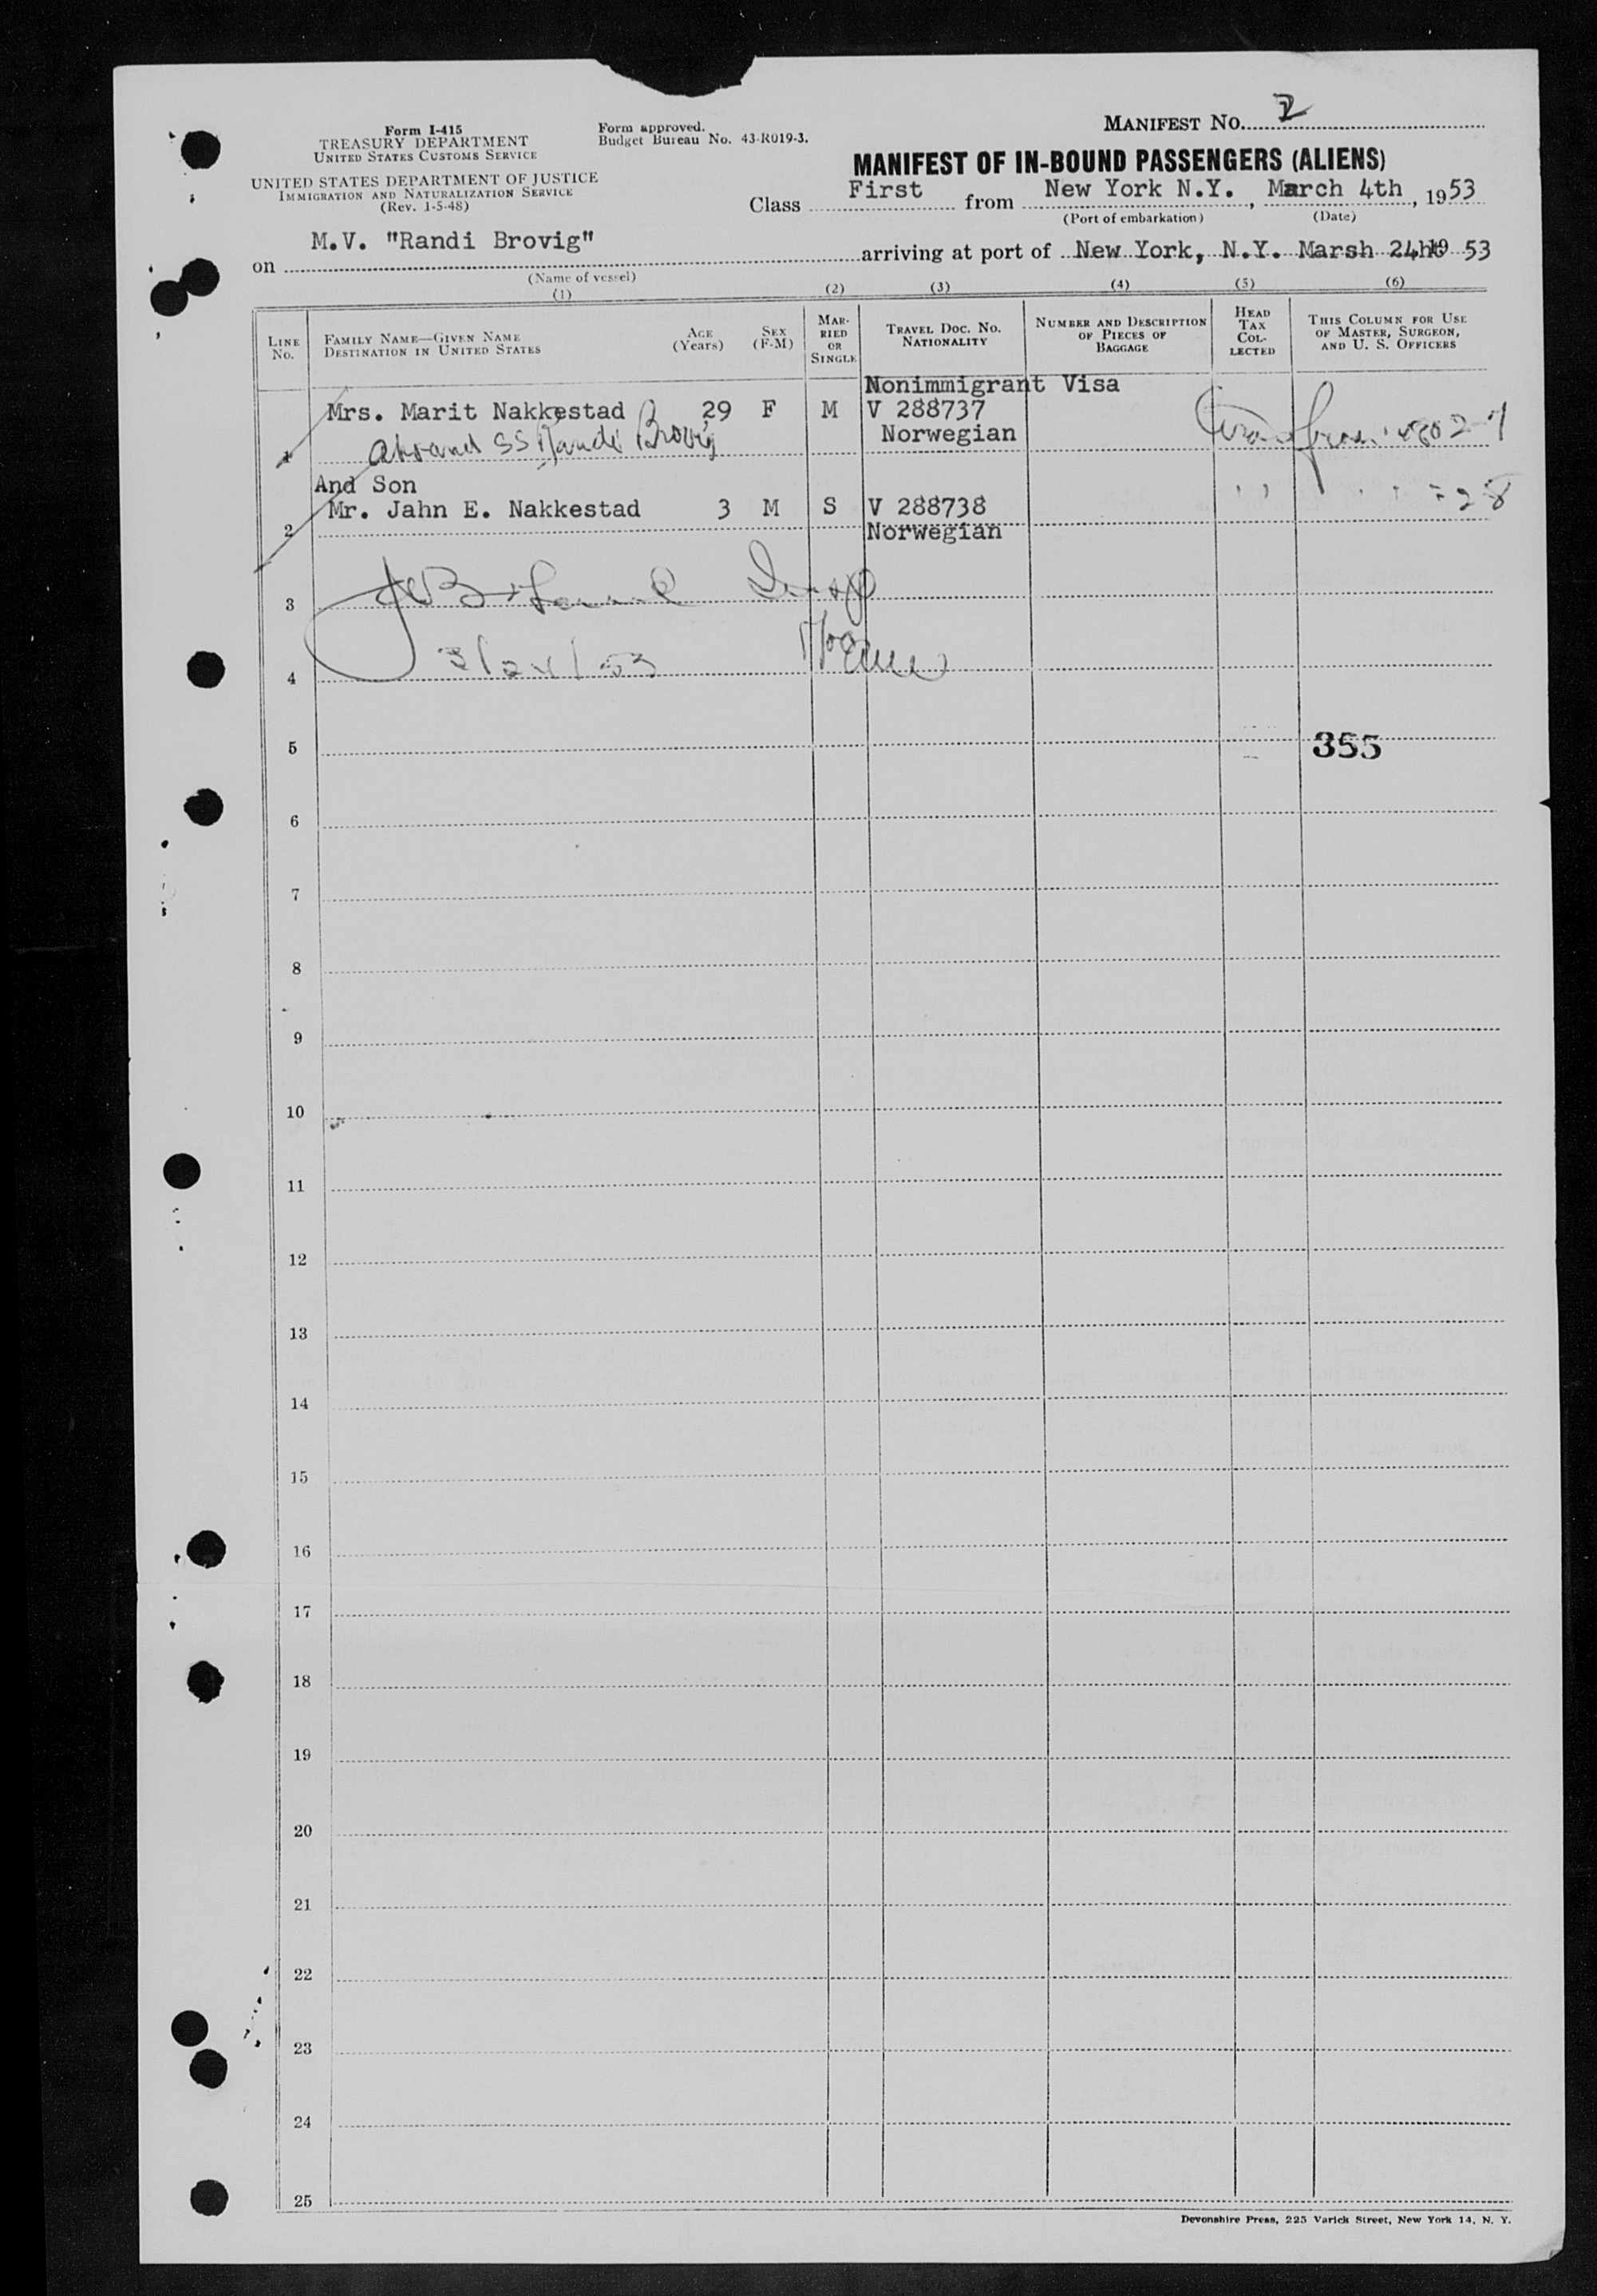 Form I-415
TREASURY DEPARTMENT
UNITED STATES CUSTOMS SERVICE
UNITED STATES DEPARTMENT OF JUSTICE
IMMIGRATION AND NATURALIZATION SERVICE
(Rev. 1-5-48)
Form approved.
Budget Bureau No. 43-R019-3.
MANIFEST NO. 2
MANIFEST OF IN-BOUND PASSENGERS (ALIENS)
Class First from New York N.Y. , March 4th , 1953
(Port of embarkation) (Date)
on M.V. "Randi Brovig" arriving at port of New York, N.Y. Marsh 24ht 19 53
(Name of vessel)
(1) (2) (3) (4) (5) (6)
LINE No. FAMILY NAME—GIVEN NAME DESTINATION IN UNITED STATES AGE (Years) SEX (F-M) MARRIED OR SINGLE TRAVEL DOC. NO. NATIONALITY NUMBER AND DESCRIPTION OF PIECES OF BAGGAGE HEAD TAX COLLECTED THIS COLUMN FOR USE OF MASTER, SURGEON, AND U. S. OFFICERS
Nonimmigrant Visa
Mrs. Marit Nakkestad 29 F M V 288737
Norwegian
1 SS Randi Brovig
And Son
Mr. Jahn E. Nakkestad 3 M S V 288738
2 Norwegian
3
3/24/53
4
5 355
6
7
8
9
10
11
12
13
14
15
16
17
18
19
20
21
22
23
24
25
Devonshire Press, 225 Varick Street, New York 14, N. Y.